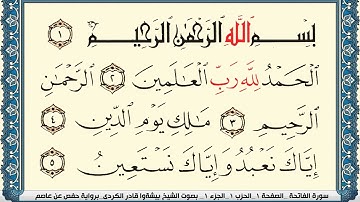 بِسْمِ ٱللَّهِ ٱلرَّحْمَٰنِ ٱلرَّحِيمِ ١
ٱلْحَمْدُ لِلَّهِ رَبِّ ٱلْعَٰلَمِينَ ٢ ٱلرَّحْمَٰنِ
ٱلرَّحِيمِ ٣ مَٰلِكِ يَوْمِ ٱلدِّينِ ٤
إِيَّاكَ نَعْبُدُ وَإِيَّاكَ نَسْتَعِينُ ٥
سورة الفاتحة _ الصفحة ١ _ الحزب ١ _ الجزء ١ _ بصوت الشيخ بيشةوا قادر الكردى _ برواية حفص عن عاصم